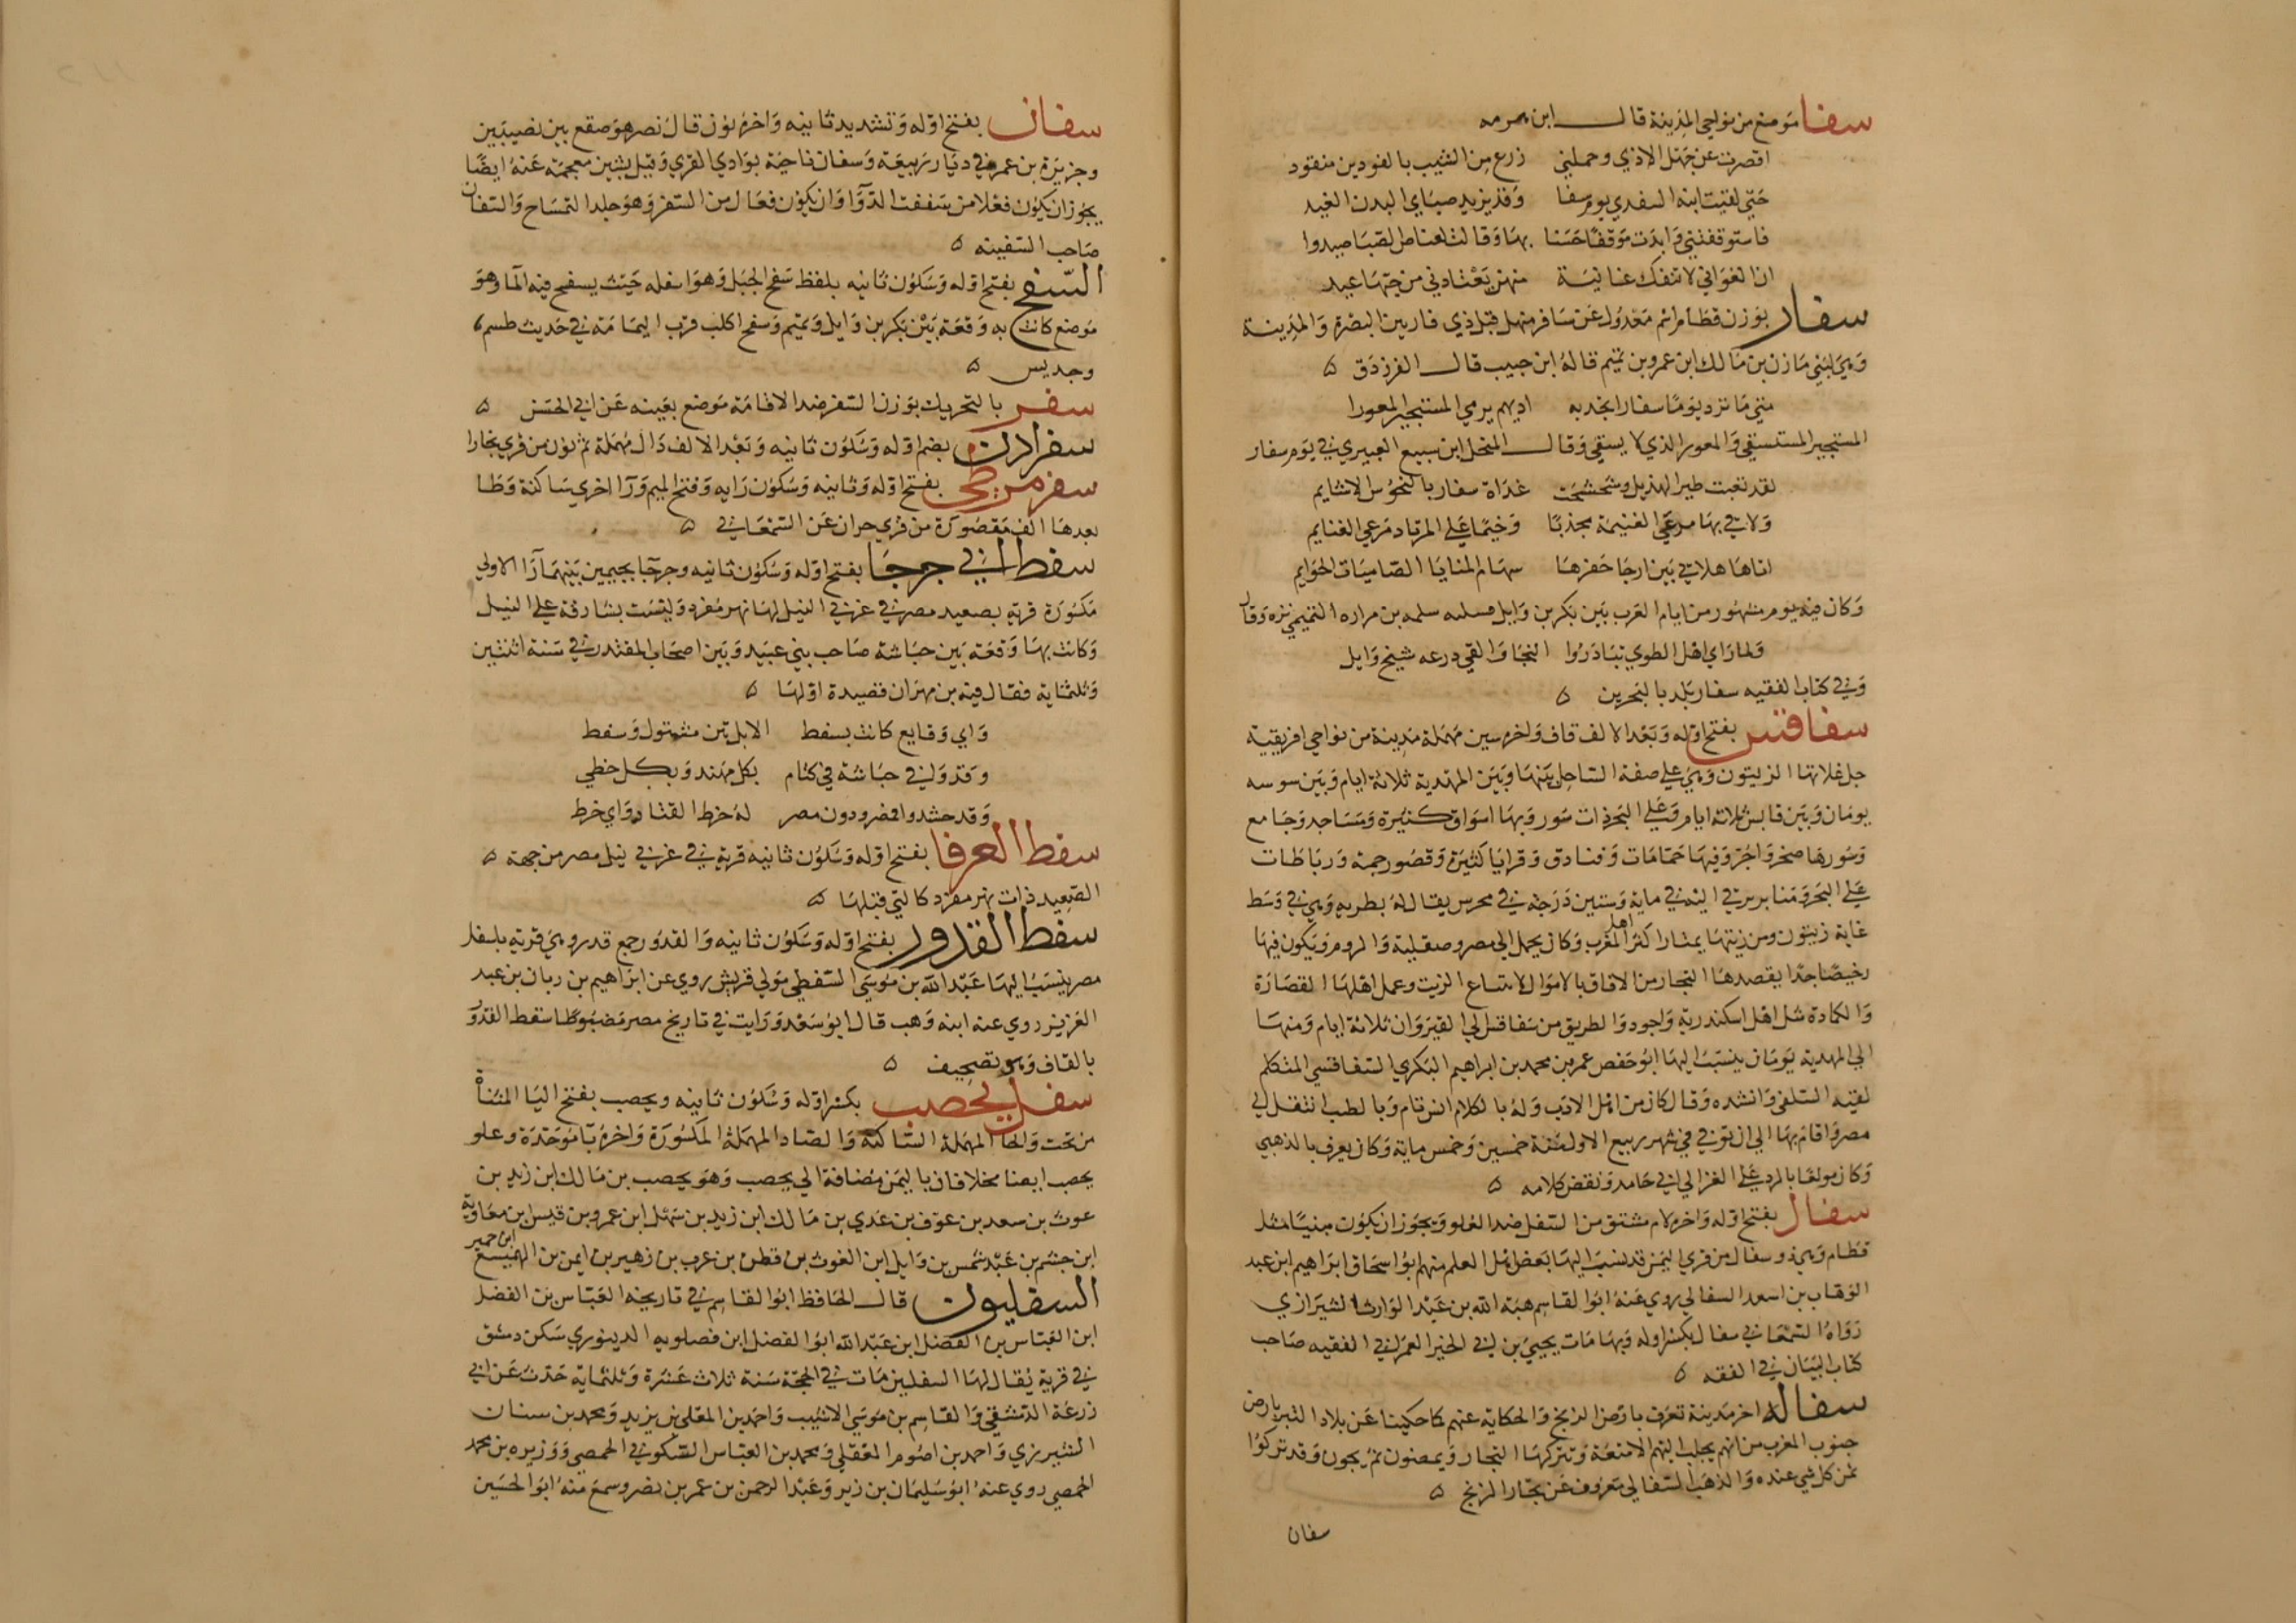 سفا موضع من نواحي المدينة قال ابن هرمه
اقصرت عن جهل الاذي وحملني زرع من الشيب بالفودين منقود
حتي لقيت ابنه السعدي يوم سفا وقد يزيد صباي البدن الغيد
فاستوقفتني وابدت موقفا حسنا بها وقالت لقناص الصبا صيدوا
ان الغواني لا تنفك غانية منهن يعتادني من حبها عيد
سفار بوزن قطام اسم معدول عن سافر منهل قبل ذي قار بين البصرة والمدينة
وهي لبني مازن بن مالك ابن عمرو بن تميم قاله ابن حبيب قال الفرزدق ٥
متي ما ترد يوما سفار تجد به اديهم يرمي المستجيز المعورا
المستجيز المستسقي والمعور الذي لا يسقي وقال المنخل ابن سبيع العبيري في يوم سفار
لقد نعبت طير الهذيل وشحشحت غداة سفار بالنحوس الاشايم
ولاقي بها مرعي الغنيمة مجدبا وخيما علي المرتاد مرعي الغنايم
اتاها هلاقي بين ارجا حفرها سهام المنايا الصاميات الحوايم
وكان فيه يوم مشهور من ايام العرب بين بكر بن وايل فسلبه سلمه بن مراره التميمي بزه وقال
ولما راي اهل الطوي تبادروا النجا والقي درعه شيخ وايل
وفي كتاب الفقيه سفار بلد بالبحرين ٥
سفاقس بفتح اوله وبعد الالف قاف واخره سين مهملة مدينة من نواحي افريقية
جل غلاتها الزيتون وهي علي ضفة الساحل بينها وبين المهدية ثلاثة ايام وبين سوسه
يومان وبين قابس ثلاثه ايام وهي علي البحر ذات سور وبها اسواق كثيرة ومساجد وجامع
وسورها صخر واجر وفيها حمامات وفنادق وقرايا كثيرة وقصور جمة ورباطات
علي البحر ومناير يرقي اليه في ماية وستين درجة في محرس يقال له بطريه وهي في وسط
غابة زيتون ومن زيتها يمتار اكثر اهل المغرب وكان يحمل الي مصر وصقلية والروم ويكون فيها
رخيصا جدا يقصدها التجار من الافاق بالاموال لابتياع الزيت وعمل اهلها القصارة
والكمادة مثل اهل اسكندرية واجود والطريق من سفاقس الي القيروان ثلاثة ايام ومنها
الي المهدية يومان ينسب اليها ابو حفص عمر بن محمد بن ابراهيم البكري السفاقسي المتكلم
لقيه السلفي وانشده وقال كان من اهل الادب وله بالكلام انس تام وبالطب انتقل الي
مصر واقام بها الي ان توفي في شهر ربيع الاول سنة خمسين وخمس ماية وكان يعرف بالذهبي
وكان مولعا بالرد علي الغزالي ابي حامد ونقض كلامه ٥
سفال بفتح اوله واخره لام مشتق من السفل ضد العلو ويجوز ان يكون مبنيا مثل
قطام وهي ذو سفال من قري اليمن قد نسب اليها بعض اهل العلم منهم ابو اسحاق ابراهيم ابن عبد
الوهاب بن اسعد السفالي روي عنه ابو القاسم هبة الله بن عبد الوارث الشيرازي
رواه السمعاني سفال بكسر اوله وبها مات يحيي بن ابي الخير العمراني الفقيه صاحب
كتاب البيان في الفقه ٥
سفاله اخر مدينة تعرف بارض الزنج والحكاية عنهم كما حكينا عن بلاد التبر بارض
جنوب المغرب من انهم يجلب اليهم الامتعة وتتركها التجار ويمضون ثم يجون وقد تركوا
ثمن كل شي عنده والذهب السفالي معروف عن تجار الزنج ٥
سفان
سفان بفتح اوله وتشديد ثانيه واخره نون قال نصر هو صقع بين نصيبين
وجزيرة بن عمر في ديار ربيعة وسفان ناحية بوادي القري وقيل بشين معجمة عنه ايضا
يجوز ان يكون فعلان من سففت الدوا وان يكون فعال من السفن وهو جلد التمساح والسفان
صاحب السفينه ٥
السفح بفتح اوله وسكون ثانيه بلفظ سفح الجبل وهو اسفله حيث يسفح فيه الما وهو
موضع كانت به وقعة بين بكر بن وايل وتميم وسفح اكلب قرب اليمامة في حديث طسم
وجديس ٥
سفر بالتحريك بوزن السفر ضد الاقامة موضع بعينه عن ابي الحسن ٥
سفرادن بضم اوله وسكون ثانيه وبعد الالف دال مهملة ثم نون من قري بخارا
سفرمرطي بفتح اوله وثانيه وسكون رايه وفتح الميم ورا اخري ساكنة وطا
بعدها الف مقصورة من قري حران عن السمعاني ٥
سفط ابي جرجا بفتح اوله وسكون ثانيه وجرجا بجيمين بينهما را الاولي
مكسورة قرية بصعيد مصر في غربي النيل لها نهر مفرد وليست بشارفة علي النيل
وكانت بها وقعة بين حباشة صاحب بني عبيد وبين اصحاب المقتدر في سنة اثنتين
وثلثماية فقال فيه بن مهران قصيدة اولها ٥
واي وقايع كانت بسفط الا بل بين مشتول وسفط
وقد ولي حباشة في كتام بكل مهند وبكل خطي
وقد حشدوا فمر ودون مصر له خرط القتاد واي خرط
سفط العرفا بفتح اوله وسكون ثانيه قرية في غربي نيل مصر من جهة ٥
الصعيد ذات نهر مفرد كالتي قبلها ٥
سفط القدور بفتح اوله وسكون ثانيه والقدور جمع قدر وهي قرية باسفل
مصر ينسب اليها عبد الله بن موسي السفطي مولي قريش روي عن ابراهيم بن ربان بن عبد
العزيز روي عنه ابنه وهب قال ابو سعد ورايت في تاريخ مصر مضبوطا سقط القدور
بالقاف وهو تصحيف ٥
سفل يحصب بكسر اوله وسكون ثانيه ويحصب بفتح اليا المثناة
من تحت والحا المهملة الساكنة والصاد المهملة المكسورة واخره با موحدة وعلو
يحصب ايضا مخلافان باليمن مضافة الي يحصب وهو يحصب بن مالك ابن زيد بن
غوث بن سعد بن عوف بن عدي بن مالك ابن زيد بن سهل ابن عمرو بن قيس ابن معاوية
ابن جشم بن عبد شمس بن وايل ابن الغوث بن قطن بن عرب بن زهير بن ايمن بن الهميسع ابن حمير
السفليون قال الحافظ ابو القاسم في تاريخه العباس بن الفضل
ابن العباس بن الفضل ابن عبد الله ابو الفضل ابن فضلويه الدينوري سكن دمشق
في قرية يقال لها السفليين مات في الحجة سنة ثلاث عشرة وثلثماية حدث عن ابي
زرعة الدمشقي والقاسم بن موسي الاشيب واحمد بن المعلي بن يزيد ومحمد بن سنان
الشيرزي واحمد بن اصرم المعقلي ومحمد بن العباس السكوني الحمصي ووزيره بن محمد
الحمصي روي عنه ابو سليمان بن زبر وعبد الرحمن بن عمر بن نصر وسمع منه ابو الحسين